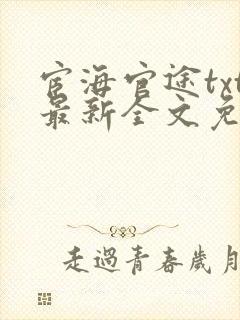 宦海官途txt
最新全文免
走過青春歲月